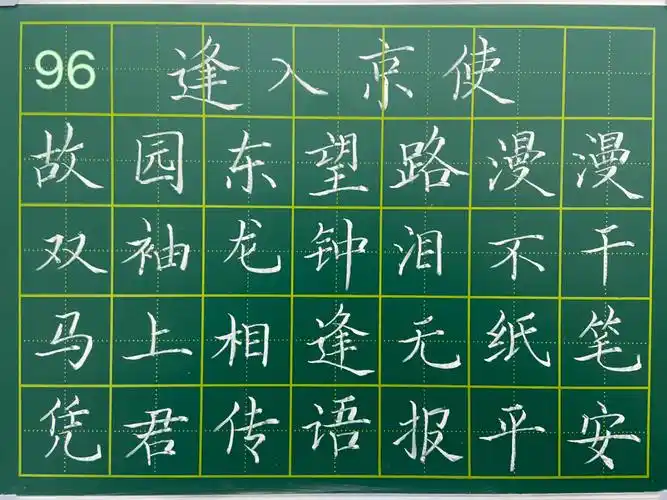 96 逢入京使
故园东望路漫漫
双袖龙钟泪不干
马上相逢无纸笔
凭君传语报平安